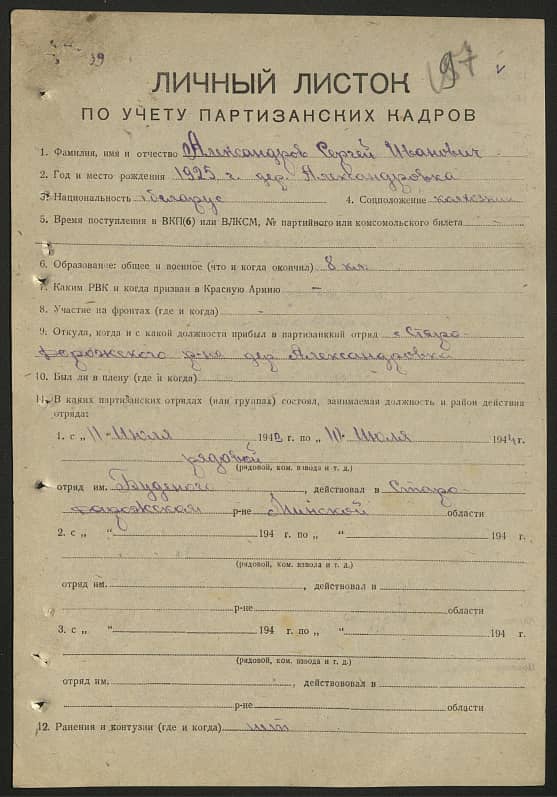 39
97
ЛИЧНЫЙ ЛИСТОК
ПО УЧЕТУ ПАРТИЗАНСКИХ КАДРОВ
1. Фамилия, имя и отчество Александров Сергей Иванович
2. Год и место рождения 1925 г. дер. Александровка
3. Национальность беларус 4. Соцположение колхозник
5. Время поступления в ВКП(б) или ВЛКСМ, № партийного или комсомольского билета —
6. Образование: общее и военное (что и когда окончил) 8 кл.
7. Каким РВК и когда призван в Красную Армию —
8. Участие на фронтах (где и когда) —
9. Откуда, когда и с какой должности прибыл в партизанский отряд с Старо-
дорожского р-на дер Александровка
10. Был ли в плену (где и когда)
11. В каких партизанских отрядах (или группах) состоял, занимаемая должность и район действия
отряда:
1. с „ 11 - Июля 194 г. по „ Июля 1944 г.
рядовой
(рядовой, ком. взвода и т. д.)
отряд им. Буденого, действовал в Старо-
дорожская р-не Минской области
2. с „ “ 194 г. по „ “ 194 г.
(рядовой, ком. взвола и т. д.)
отряд им. , действовал в
р-не области
3. с „ “ 194 г. по „ “ 194 г.
(рядовой, ком. взвода и т. д.)
отряд им. , действововал в
р-не области
12. Ранения и контузии (где и когда) нет